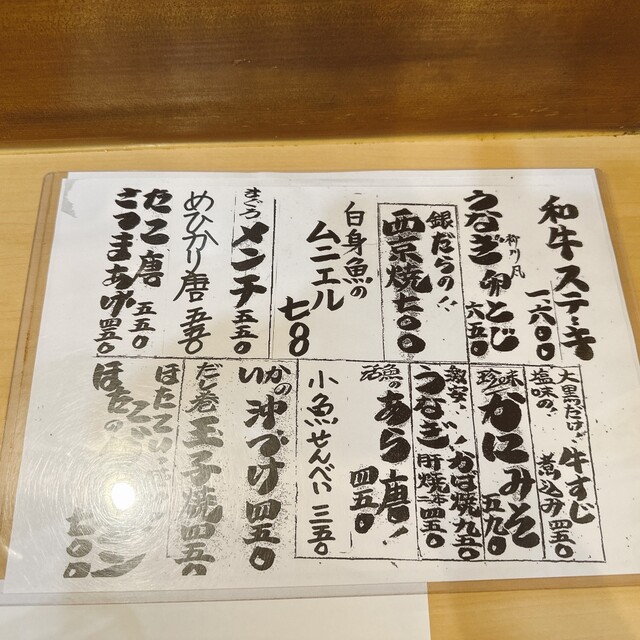 和牛ステーキ 一六〇〇
うなぎ卵とじ 柳川風 六五〇
銀だらの!!
西京焼 七〇〇
白身魚の
ムニエル 七8
まぐろ
メンチ 五五〇
めひかり唐 五五〇
たこ唐 五五〇
さつまあげ 四五〇
大黒だけ!
塩味の! 牛すじ
煮込み 四五〇
珍味 かにみそ 五九〇
激安! かば焼 九五〇
うなぎ! 肝焼一本 四五〇
活魚の あら唐! 四五〇
小魚せんべい 三五〇
いかの 沖づけ 四五〇
だし巻 玉子焼 四五〇
ほたて
ほたての
七〇〇